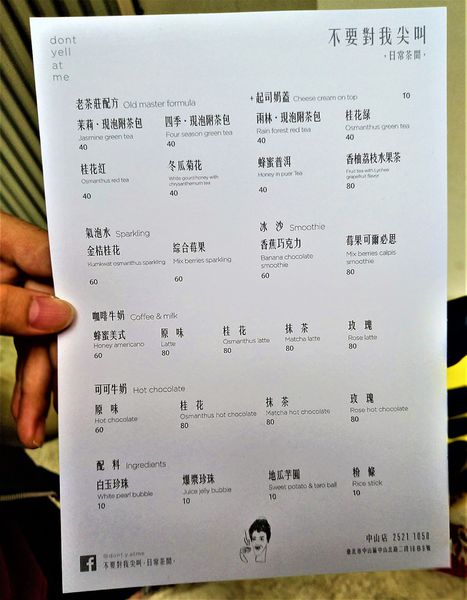 dont
yell
at
me
不要對我尖叫
·日常茶間·
老茶莊配方 Old master formula
+起司奶蓋 Cheese cream on top 10
茉莉·現泡附茶包 四季·現泡附茶包 雨林·現泡附茶包 桂花綠
Jasmine green tea Four season green tea Rain forest red tea Osmanthus green tea
40 40 40 40
桂花紅 冬瓜菊花 蜂蜜普洱 香柚荔枝水果茶
Osmanthus red tea White gourd honey with chrysanthemum tea Honey in puer Tea Fruit tea with Lychee grapefruit flavor
40 40 40 80
氣泡水 Sparkling
冰 沙 Smoothie
金桔桂花 綜合莓果 香蕉巧克力 莓果可爾必思
Kumkwat osmanthus sparkling Mix berries sparkling Banana chocolate smoothie Mix berries calpis smoothie
60 60 60 80
咖啡牛奶 Coffee & milk
蜂蜜美式 原 味 桂 花 抹 茶 玫 瑰
Honey americano Latte Osmanthus latte Matcha latte Rose latte
60 80 80 80 80
可可牛奶 Hot chocolate
原 味 桂 花 抹 茶 玫 瑰
Hot chocolate Osmanthus hot chocolate Matcha hot chocolate Rose hot chocolate
60 80 80 80
配 料 Ingredients
白玉珍珠 爆漿珍珠 地瓜芋圓 粉 條
White pearl bubble Juice jelly bubble Sweet potato & taro ball Rice stick
10 10 10 10
f @dont.y.atme
不要對我尖叫·日常茶間·
中山店 2521 1050
臺北市中山區中山北路二段16巷9號